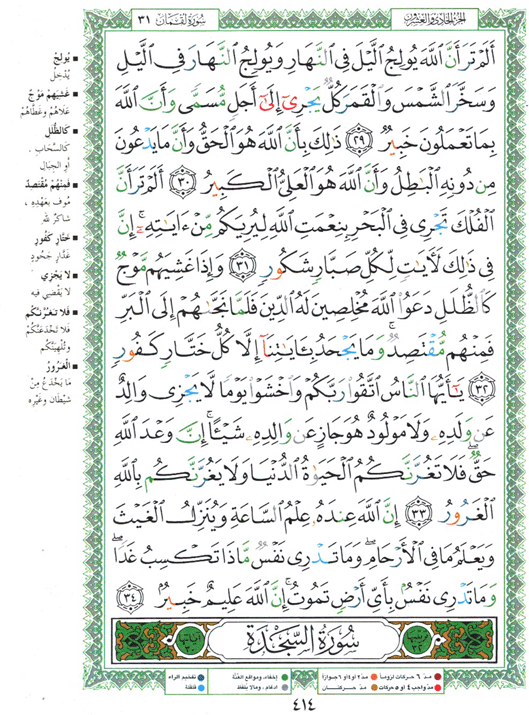 الجزء الحادي والعشرون
سورة لقمان ٣١
أَلَمْ تَرَ أَنَّ ٱللَّهَ يُولِجُ ٱلَّيْلَ فِى ٱلنَّهَارِ وَيُولِجُ ٱلنَّهَارَ فِى ٱلَّيْلِ
وَسَخَّرَ ٱلشَّمْسَ وَٱلْقَمَرَ كُلٌّ يَجْرِىٓ إِلَىٰٓ أَجَلٍ مُّسَمًّى وَأَنَّ ٱللَّهَ
بِمَا تَعْمَلُونَ خَبِيرٌ ٢٩ ذَٰلِكَ بِأَنَّ ٱللَّهَ هُوَ ٱلْحَقُّ وَأَنَّ مَا يَدْعُونَ
مِن دُونِهِ ٱلْبَٰطِلُ وَأَنَّ ٱللَّهَ هُوَ ٱلْعَلِىُّ ٱلْكَبِيرُ ٣٠ أَلَمْ تَرَ أَنَّ
ٱلْفُلْكَ تَجْرِى فِى ٱلْبَحْرِ بِنِعْمَتِ ٱللَّهِ لِيُرِيَكُم مِّنْ ءَايَٰتِهِۦٓ ۚ إِنَّ
فِى ذَٰلِكَ لَءَايَٰتٍ لِّكُلِّ صَبَّارٍ شَكُورٍ ٣١ وَإِذَا غَشِيَهُم مَّوْجٌ
كَٱلظُّلَلِ دَعَوُا۟ ٱللَّهَ مُخْلِصِينَ لَهُ ٱلدِّينَ فَلَمَّا نَجَّىٰهُمْ إِلَى ٱلْبَرِّ
فَمِنْهُم مُّقْتَصِدٌ ۚ وَمَا يَجْحَدُ بِـَٔايَٰتِنَآ إِلَّا كُلُّ خَتَّارٍ كَفُورٍ
٣٢ يَٰٓأَيُّهَا ٱلنَّاسُ ٱتَّقُوا۟ رَبَّكُمْ وَٱخْشَوْا۟ يَوْمًا لَّا يَجْزِى وَالِدٌ
عَن وَلَدِهِۦ وَلَا مَوْلُودٌ هُوَ جَازٍ عَن وَالِدِهِۦ شَيْـًٔا ۚ إِنَّ وَعْدَ ٱللَّهِ
حَقٌّ ۖ فَلَا تَغُرَّنَّكُمُ ٱلْحَيَوٰةُ ٱلدُّنْيَا وَلَا يَغُرَّنَّكُم بِٱللَّهِ
ٱلْغَرُورُ ٣٣ إِنَّ ٱللَّهَ عِندَهُۥ عِلْمُ ٱلسَّاعَةِ وَيُنَزِّلُ ٱلْغَيْثَ
وَيَعْلَمُ مَا فِى ٱلْأَرْحَامِ ۖ وَمَا تَدْرِى نَفْسٌ مَّاذَا تَكْسِبُ غَدًا ۖ
وَمَا تَدْرِى نَفْسٌۢ بِأَىِّ أَرْضٍ تَمُوتُ ۚ إِنَّ ٱللَّهَ عَلِيمٌ خَبِيرٌۢ ٣٤
سُورَةُ السَّجْدَةِ
▪ يُولِجُ
يُدْخِلُ
▪ غَشِيَهُمْ مَوْجٌ
عَلَاهُمْ وَغَطَّاهُمْ
▪ كَالظُّلَلِ
كَالسَّحَابِ
أو الجِبَالِ
▪ فَمِنْهُمْ مُقْتَصِدٌ
مُوفٍ بِعَهْدِهِ ،
شَاكِرٌ لله
▪ خَتَّارٍ كَفُورٍ
غَدَّارٍ جَحُودٍ
▪ لَا يَجْزِي
لَا يَقْضِي فيه
▪ فَلَا تَغُرَّنَّكُم
فَلَا تَخْدَعَنَّكُمْ
وَتُلْهِيَنَّكُم
▪ الْغَرُورُ
مَا يَخْدَعُ مِنْ
شَيْطَانٍ وَغَيْرِهِ
مدّ ٦ حركات لزوماً
مدّ ٢ أو ٤ أو ٦ جوازاً
مدّ واجب ٤ أو ٥ حركات
مدّ حركتان
إخفاء، ومواقع الغُنَّة
إدغام، وما لا يُلفظ
تفخيم الراء
قلقلة
٤١٤